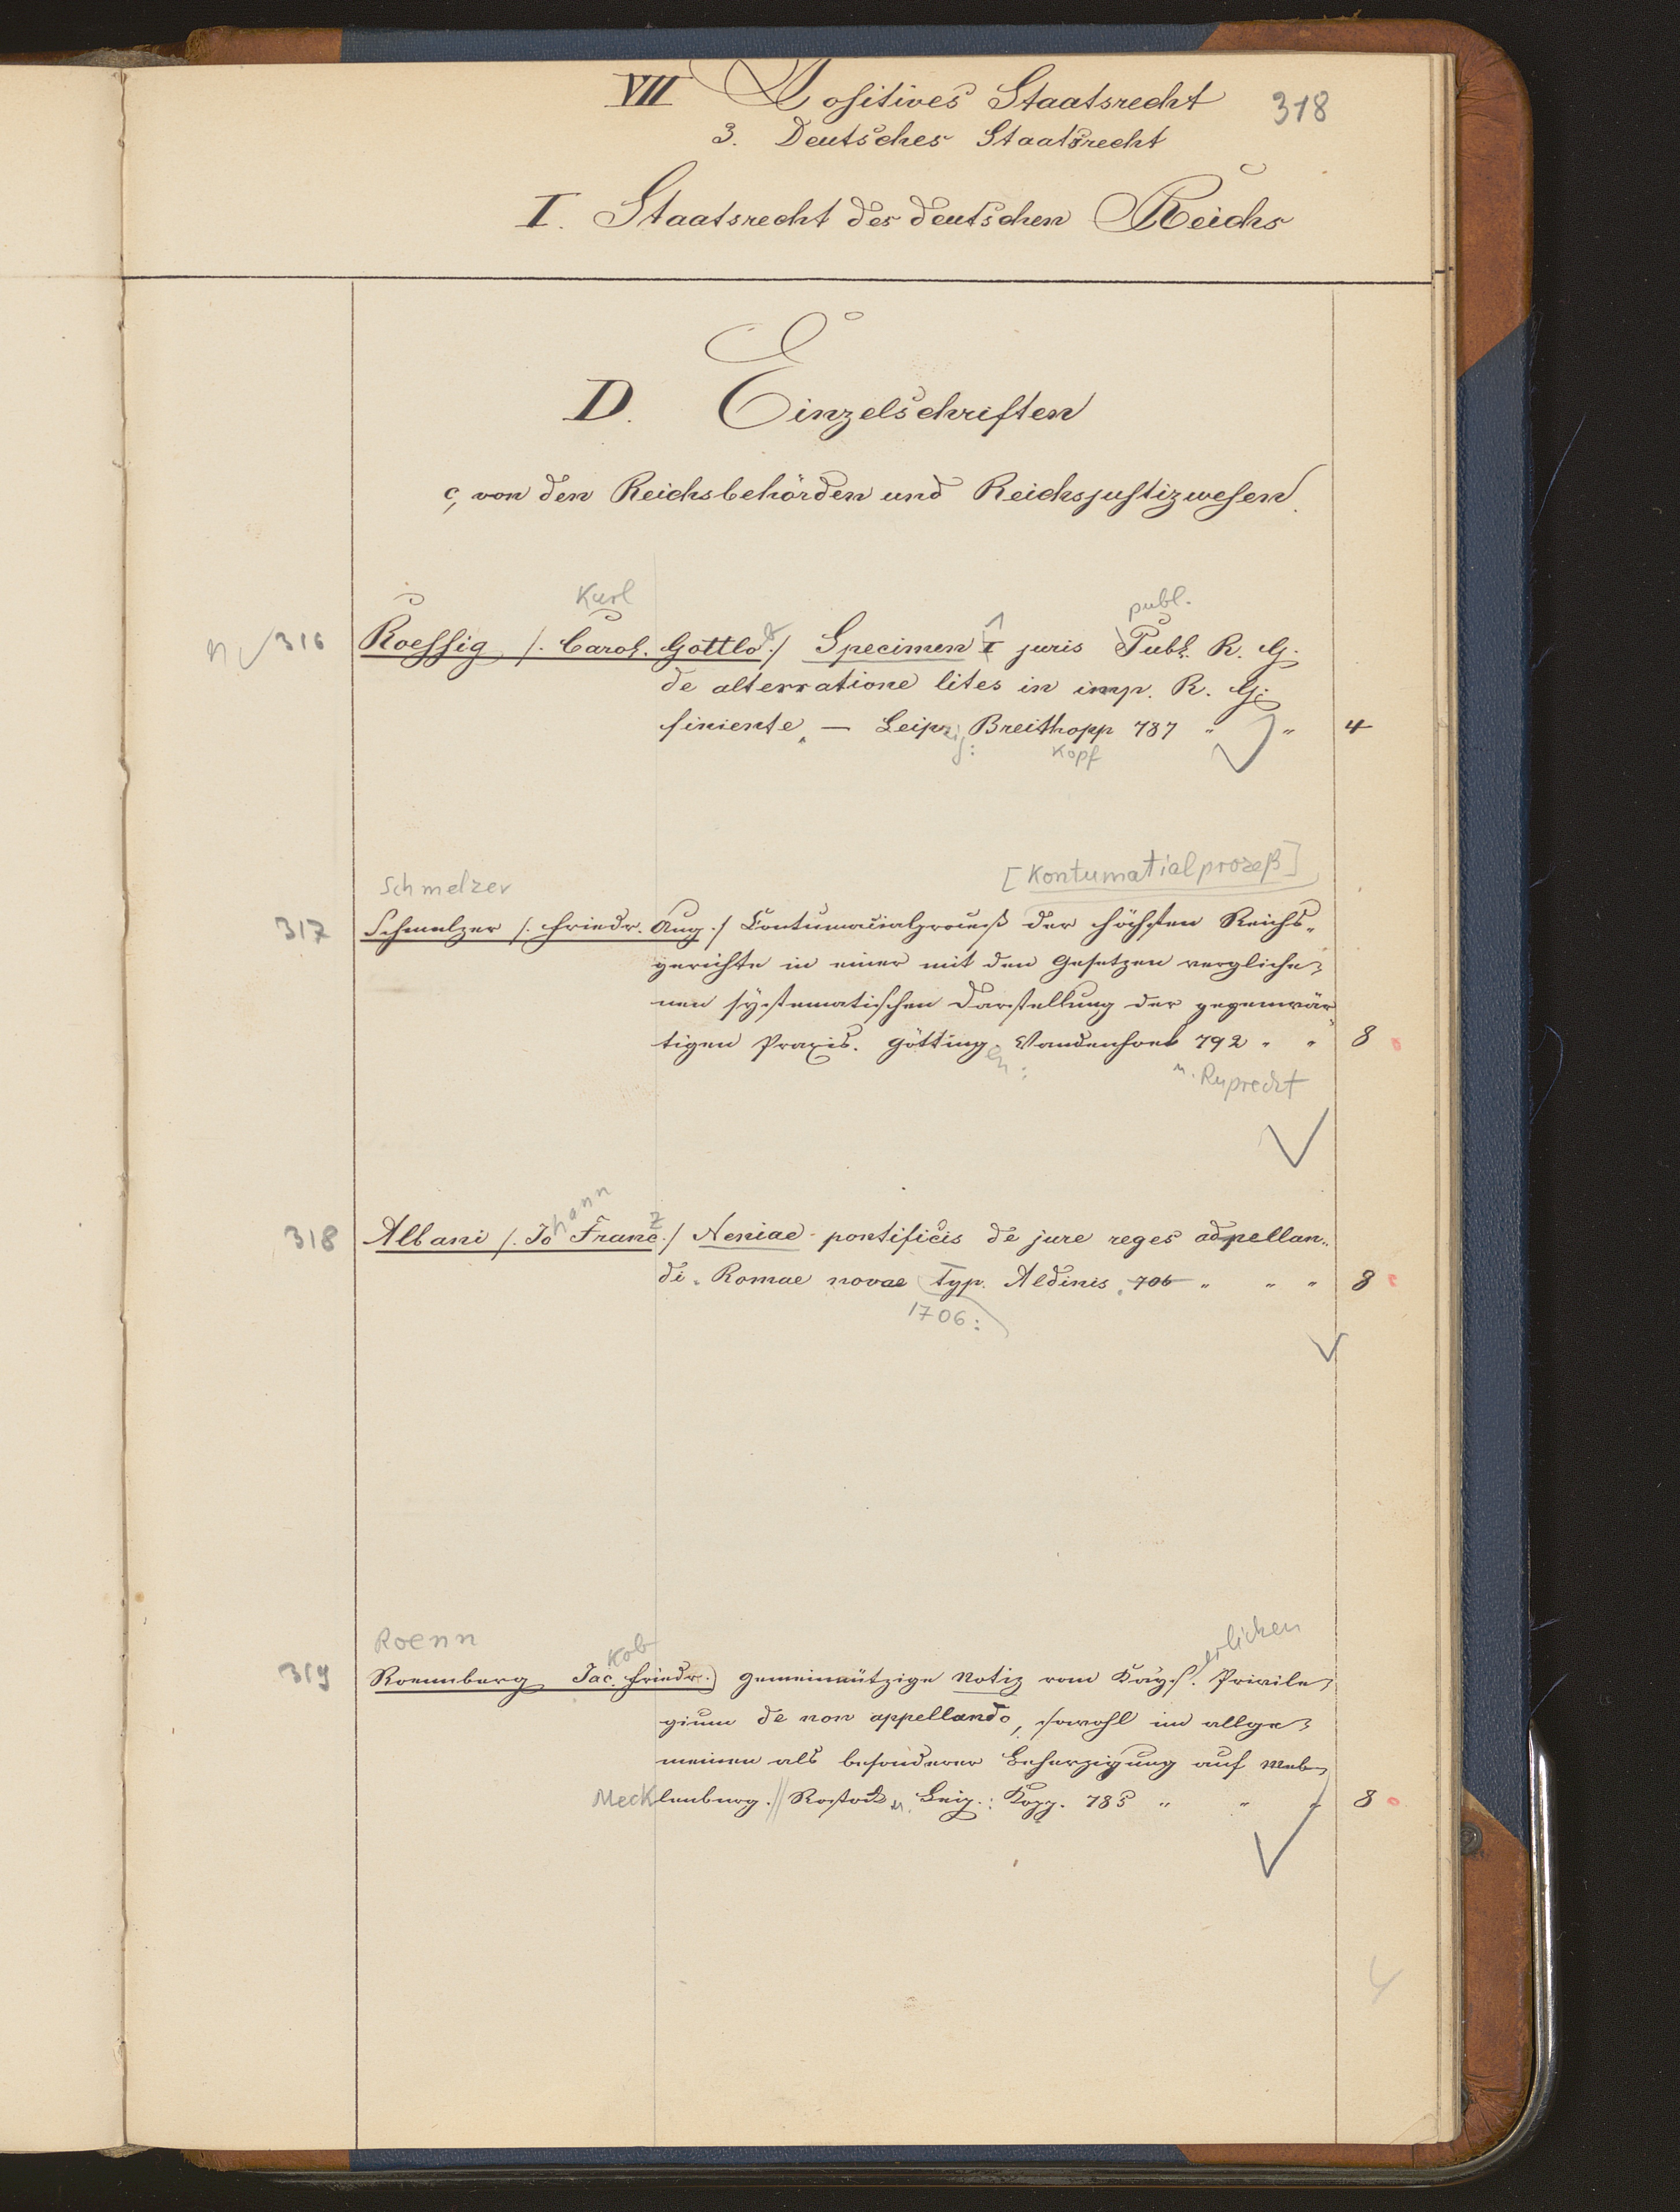 VII Positives Staatsrecht 318
3. Deutsches Staatsrecht
I. Staatsrecht des deutschen Reichs
D. Einzelschriften
c, von den Reichsbehörden und Reichsjustizwesen.
Karl publ.
n 316 Roessig /. Carol. Gottlob ./ Specimen I juris Publ. R. G.
de alterratione lites in imp. R. G.
finiente. — Leipzig: Breithopp 787 " " 4
kopf
Schmelzer [Kontumatialprozeß]
317 Schmelzer /. Friedr. Aug ./ Contumacialproceß der höchsten Reichs-
gerichte in einer mit den Gesetzen vergliche-
nen systematischen Darstellung der gegenwär-
tigen Praxis. Götting. Vandenhoek 792 " " 8
en: u. Ruprecht
hann z
318 Albani /. Jo Franc ./ Neniae pontificis de jure reges adpellan-
di. Romae novae Typ. Aldinis. 706 " " " 8
1706:
Roenn kob erlichen
319 Roennberg Jac. Friedr.) gemeinnützige Notiz vom Kays. Privile-
gium de non appellando, sowohl im allge-
meinen als besonderer Beherzigung auf Mek-
Mecklenburg. // Rostock u. Leip.: Kopp. 785 " " " 8